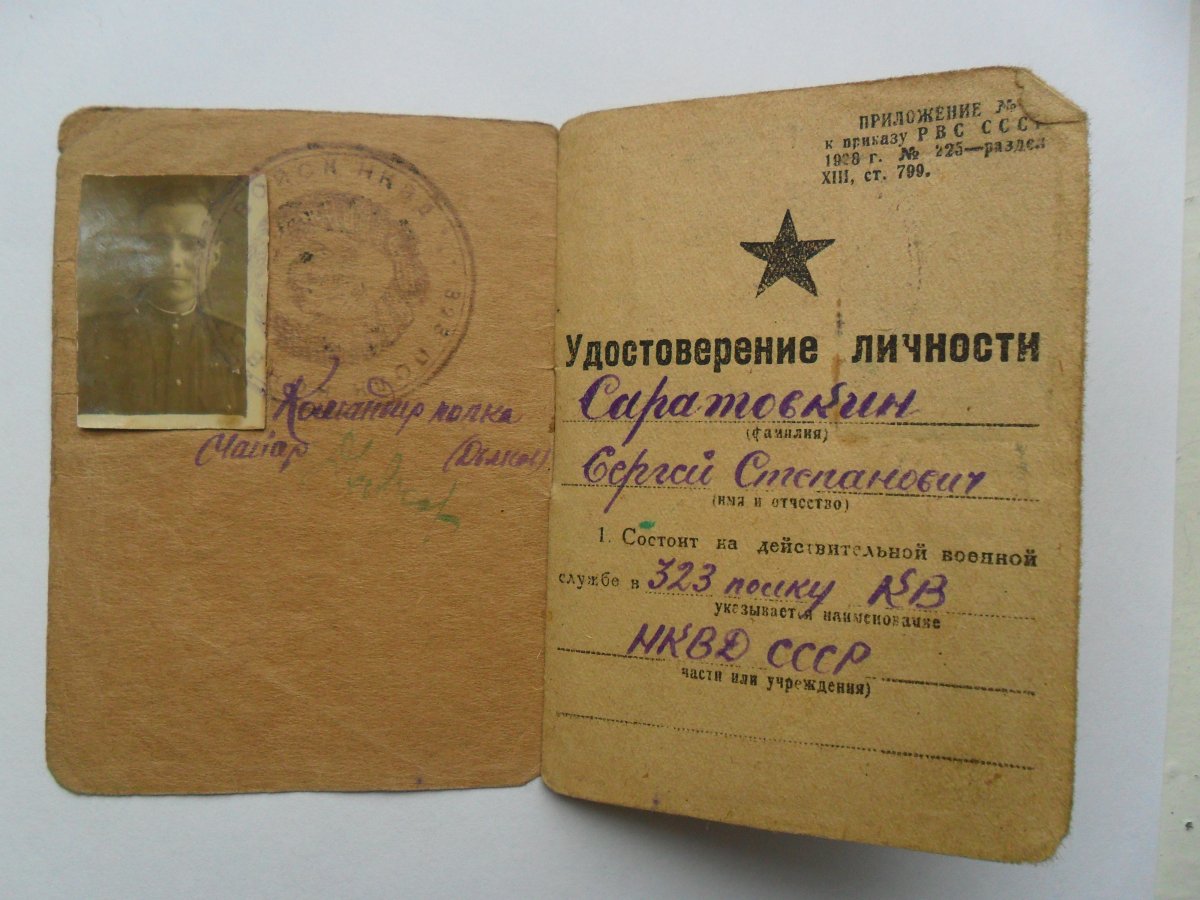 ВОЙСК НКВД
323 ПОЛК
Командир полка
Майор
ПРИЛОЖЕНИЕ №
к приказу РВС СССР
1928 г. № 225—раздел
XIII, ст. 799.
Удостоверение личности
Саратовкин
(фамилия)
Сергей Степанович
(имя и отчество)
1. Состоит на действительной военной
службе в 323 полку КВ
указывается наименование
НКВД СССР
части или учреждения)